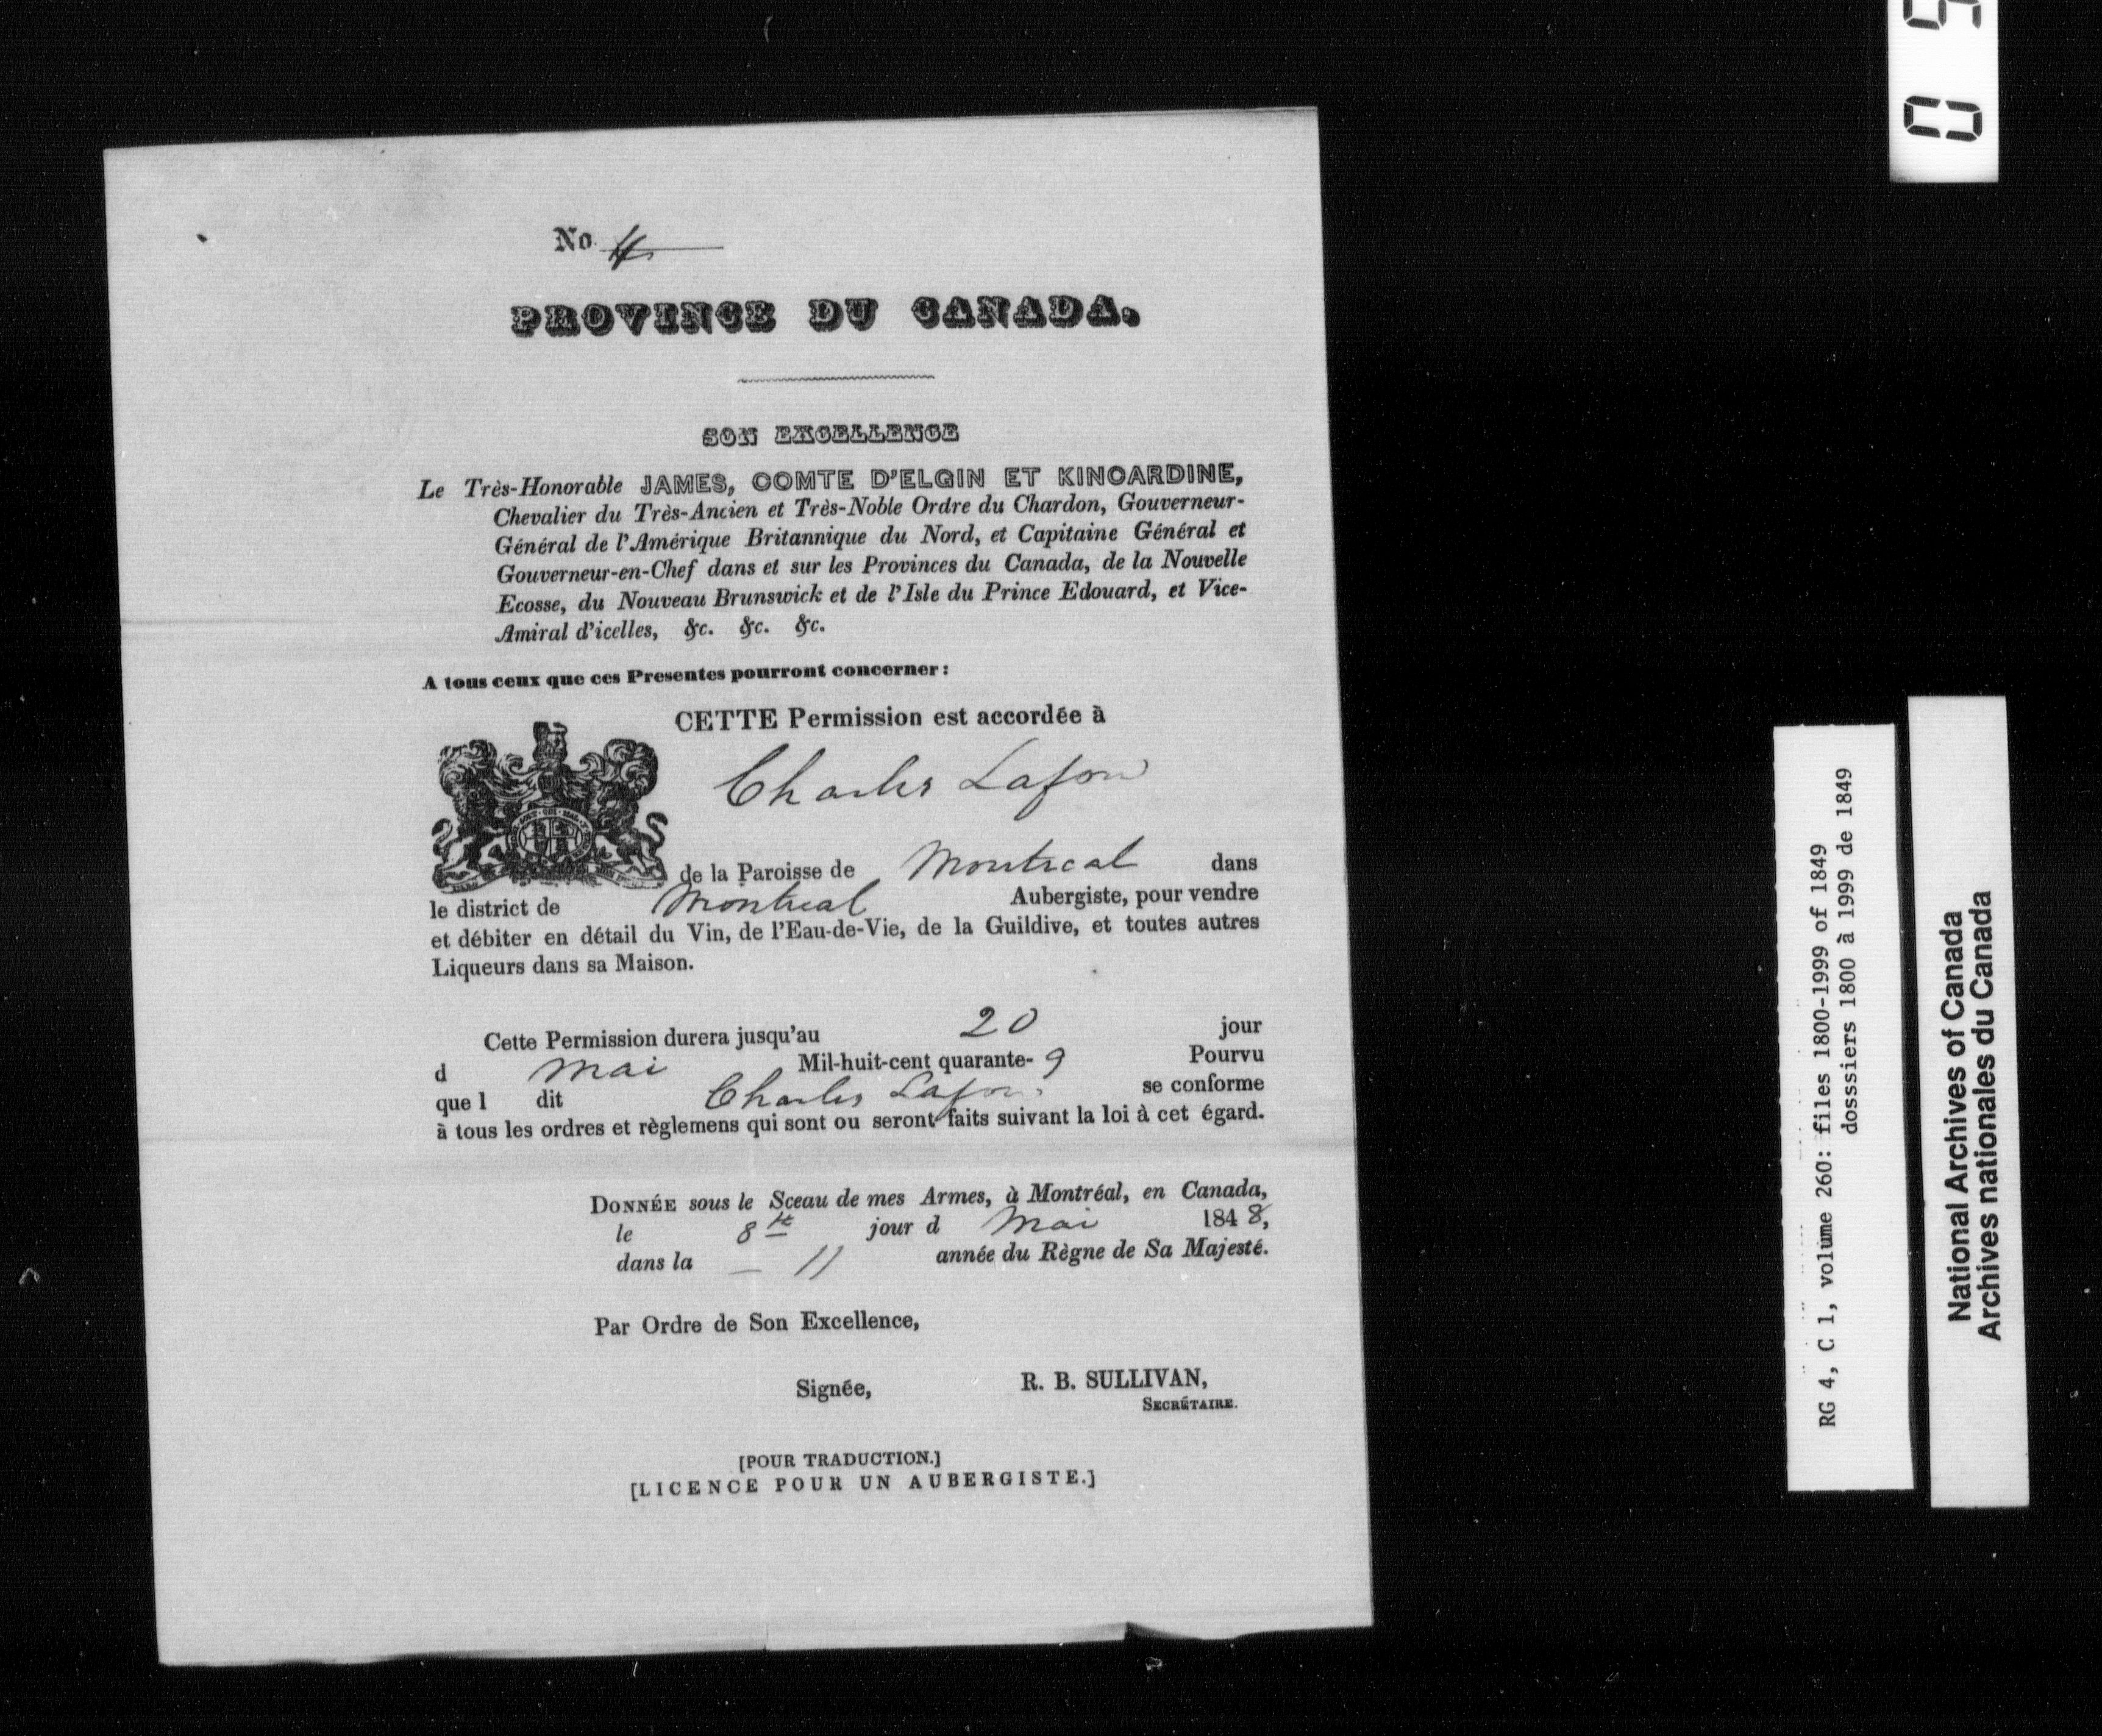 No. 4
PROVINCE DU CANADA.
SON EXCELLENCE
Le Très-Honorable JAMES, COMTE D'ELGIN ET KINCARDINE,
Chevalier du Très-Ancien et Très-Noble Ordre du Chardon, Gouverneur-
Général de l'Amérique Britannique du Nord, et Capitaine Général et
Gouverneur-en-Chef dans et sur les Provinces du Canada, de la Nouvelle
Ecosse, du Nouveau Brunswick et de l'Isle du Prince Edouard, et Vice-
Amiral d'icelles, &c. &c. &c.
A tous ceux que ces Presentes pourront concerner:
CETTE Permission est accordée à
Charles Lafon
de la Paroisse de Montreal dans
le district de Montreal Aubergiste, pour vendre
et débiter en détail du Vin, de l'Eau-de-Vie, de la Guildive, et toutes autres
Liqueurs dans sa Maison.
Cette Permission durera jusqu'au 20 jour
d mai Mil-huit-cent quarante-9 Pourvu
que l dit Charles Lafon se conforme
à tous les ordres et règlemens qui sont ou seront faits suivant la loi à cet égard.
DONNÉE sous le Sceau de mes Armes, à Montréal, en Canada,
le 8te jour d Mai 1848,
dans la — 11 année du Règne de Sa Majesté.
Par Ordre de Son Excellence,
Signée, R. B. SULLIVAN,
SECRÉTAIRE.
[POUR TRADUCTION.]
[LICENCE POUR UN AUBERGISTE.]
RG 4, C 1, volume 260: files 1800-1999 of 1849
dosssiers 1800 à 1999 de 1849
National Archives of Canada
Archives nationales du Canada